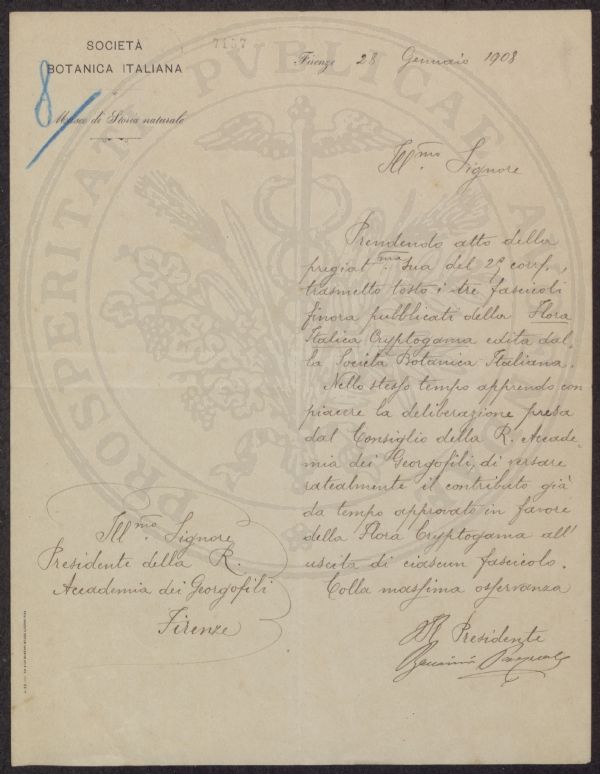 SOCIETÀ
BOTANICA ITALIANA
Museo di Storia naturale
8
7157
Firenze 28 Gennaio 1908
Ill.mo Signore
Prendendo atto della
pregiat.ma Sua del corr.,
trasmetto tosto i tre fascicoli
finora pubblicati della Flora
Italica Cryptogama edita dal
la Società Botanica Italiana.
Nello stesso tempo apprendo con
piacere la deliberazione presa
dal Consiglio della R. Accade-
mia dei Georgofili, di versare
ratealmente il contributo già
da tempo approvato in favore
della Flora Cryptogama all'
uscita di ciascun fascicolo.
Colla massima osservanza
Il Presidente
Ill.mo Signore
Presidente della R.
Accademia dei Georgofili
Firenze
PROSPERITATI PUBLICAE